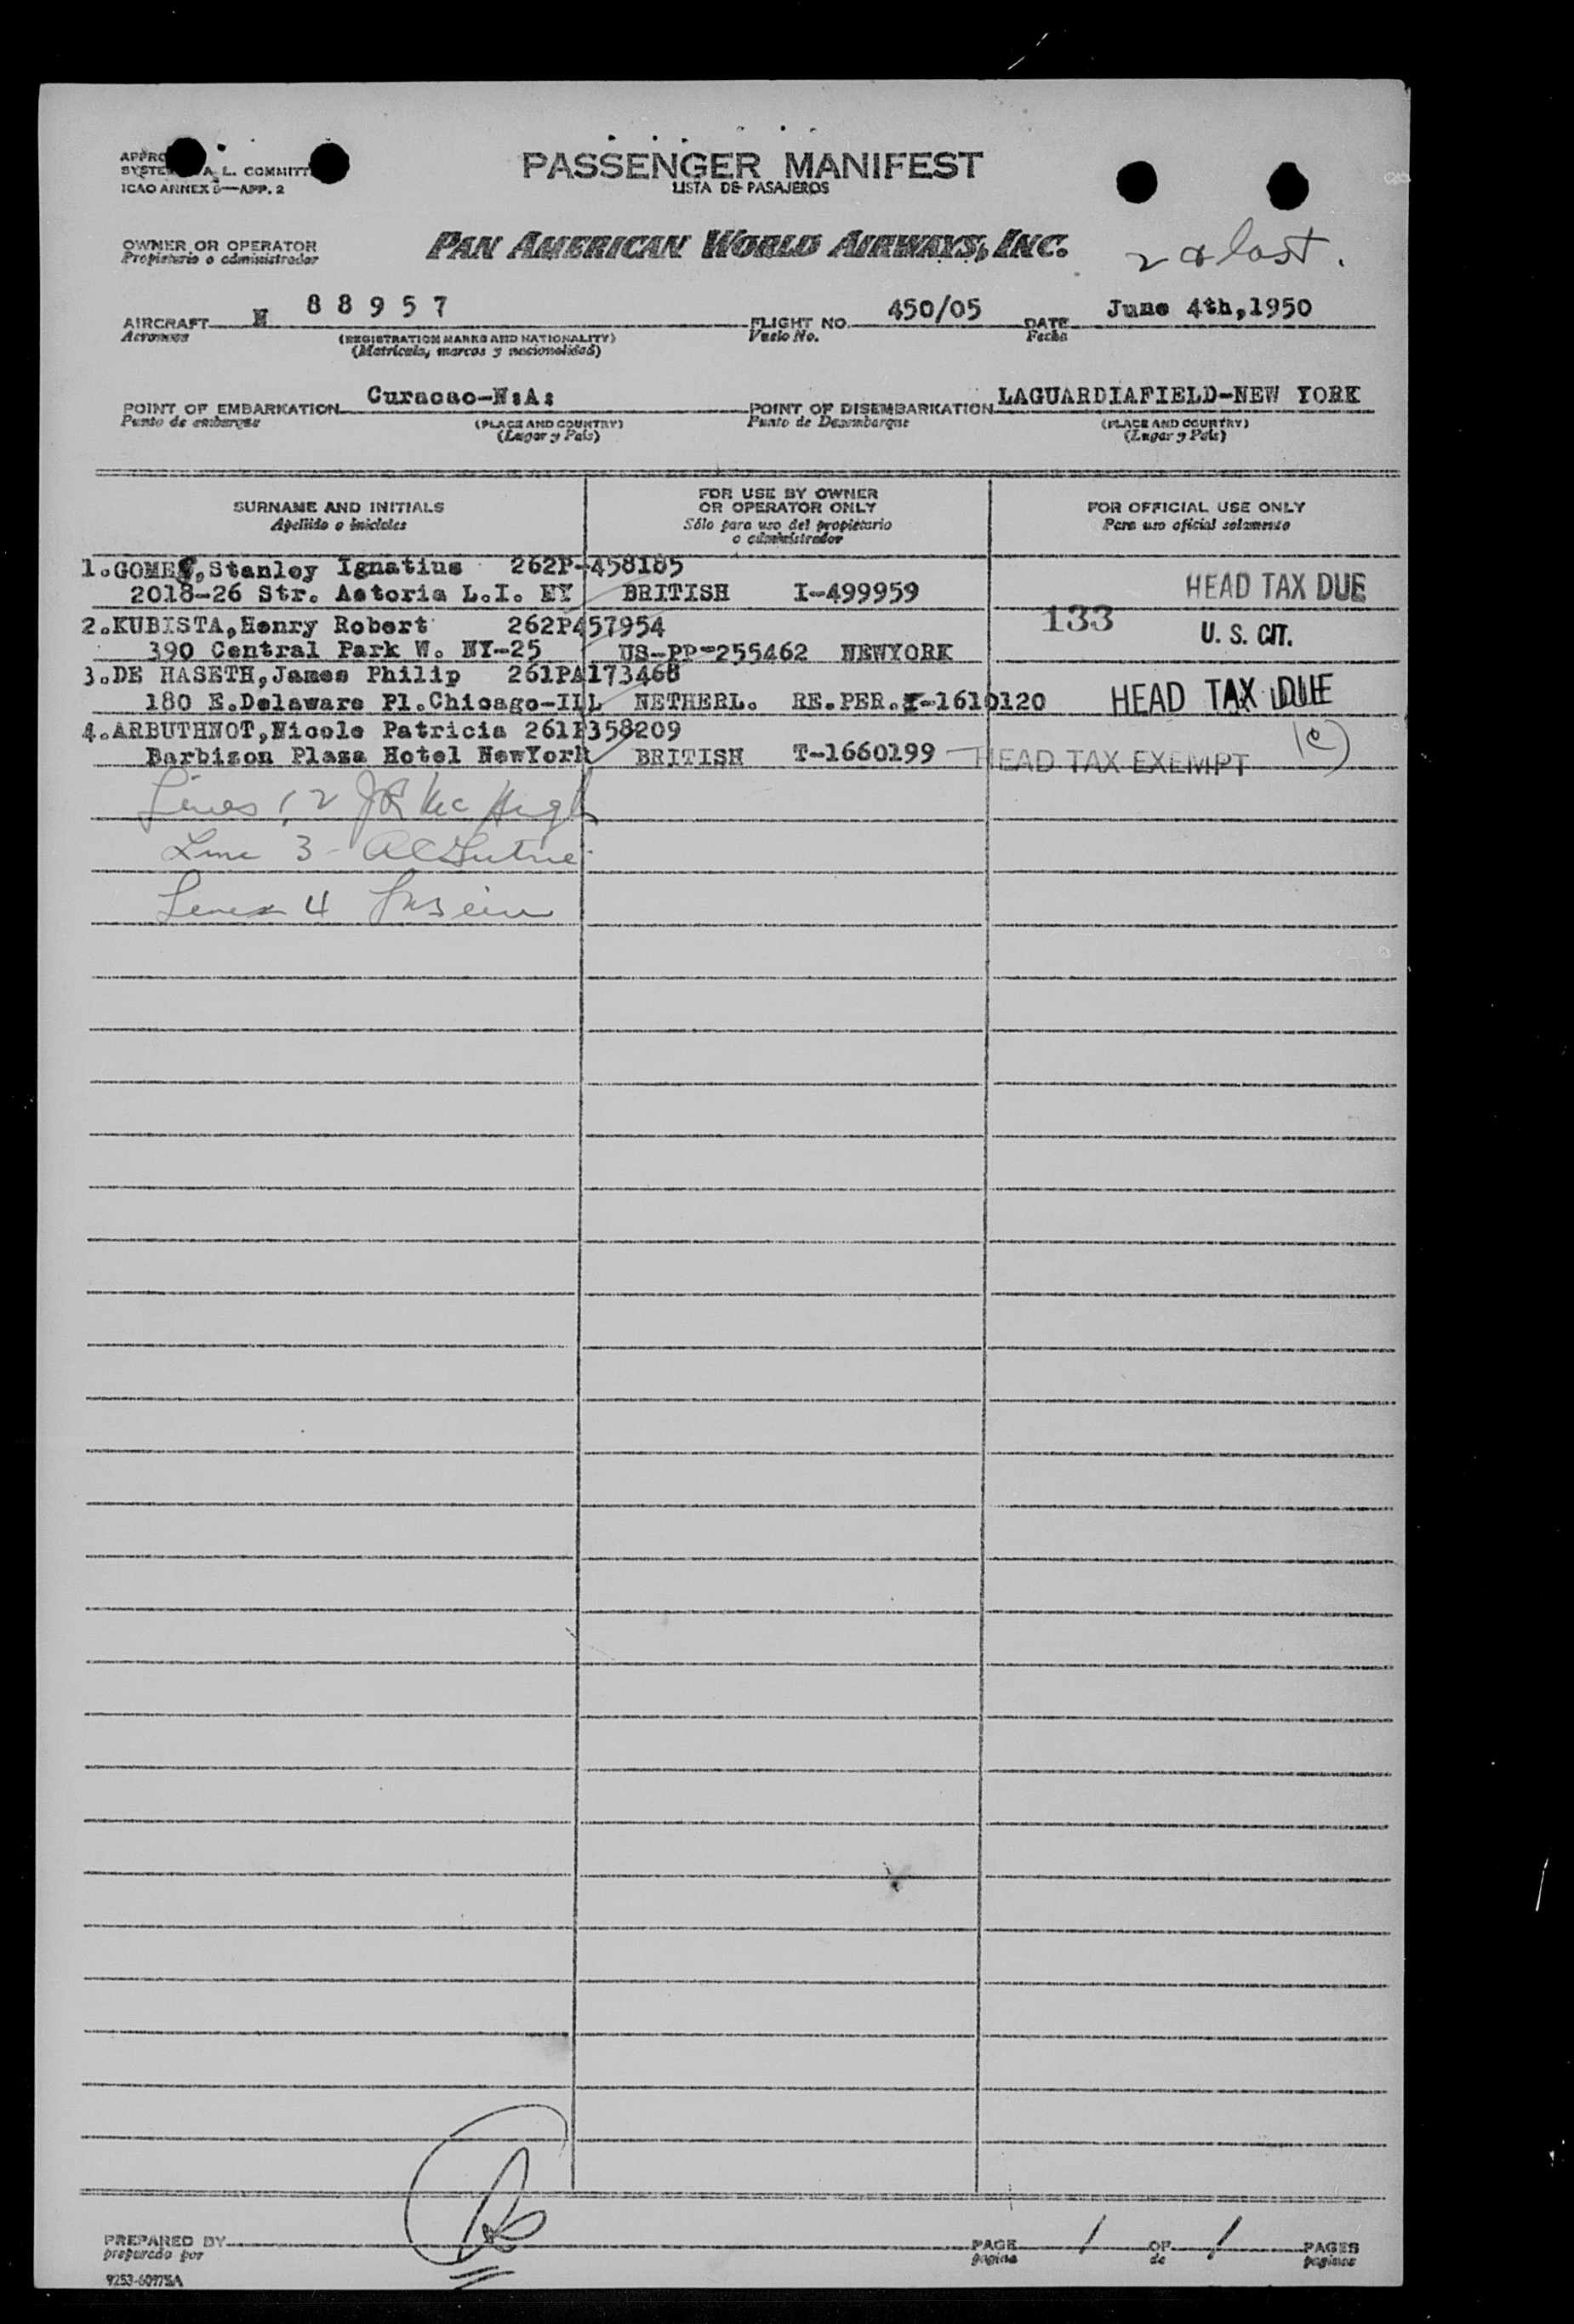 PASSENGER MANIFEST
LISTA DE PASAJEROS
L. COMMITT
ICAO ANNEX 9—APP. 2
OWNER OR OPERATOR
Propietario o administrador
PAN AMERICAN WORLD AIRWAYS, INC.
2 & last.
AIRCRAFT N 88957
Aeronave
(REGISTRATION MARKS AND NATIONALITY)
(Matricula, marcas y nacionalidad)
FLIGHT NO. 450/05
Vuelo No.
DATE June 4th,1950
Fecha
POINT OF EMBARKATION Curacao-N:A:
Punto de embarque
(PLACE AND COUNTRY)
(Lugar y País)
POINT OF DISEMBARKATION LAGUARDIAFIELD-NEW YORK
Punto de Desembarque
(PLACE AND COUNTRY)
(Lugar y País)
SURNAME AND INITIALS
Apellido o iniciales
FOR USE BY OWNER
OR OPERATOR ONLY
Sólo para uso del propietario
o administrador
FOR OFFICIAL USE ONLY
Para uso oficial solamente
1.GOMES,Stanley Ignatius 262P-458185
2018-26 Str. Astoria L.I. NY BRITISH I-499959 HEAD TAX DUE
2.KUBISTA,Henry Robert 262P457954 133 U. S. CIT.
390 Central Park W. NY-25 US-PP-255462 NEWYORK
3.DE HASETH,James Philip 261PA173468
180 E.Delaware Pl.Chicago-ILL NETHERL. RE.PER.I-1610120 HEAD TAX DUE
4.ARBUTHNOT,Nicole Patricia 261P358209
Barbizon Plaza Hotel NewYork BRITISH T-1660199 HEAD TAX EXEMPT (C)
Lines 1, 2 Mc Hugh
Line 3 -
Line 4
PREPARED BY
preparado por
PAGE 1 OF 1 PAGES
página de páginas
9253-60975A